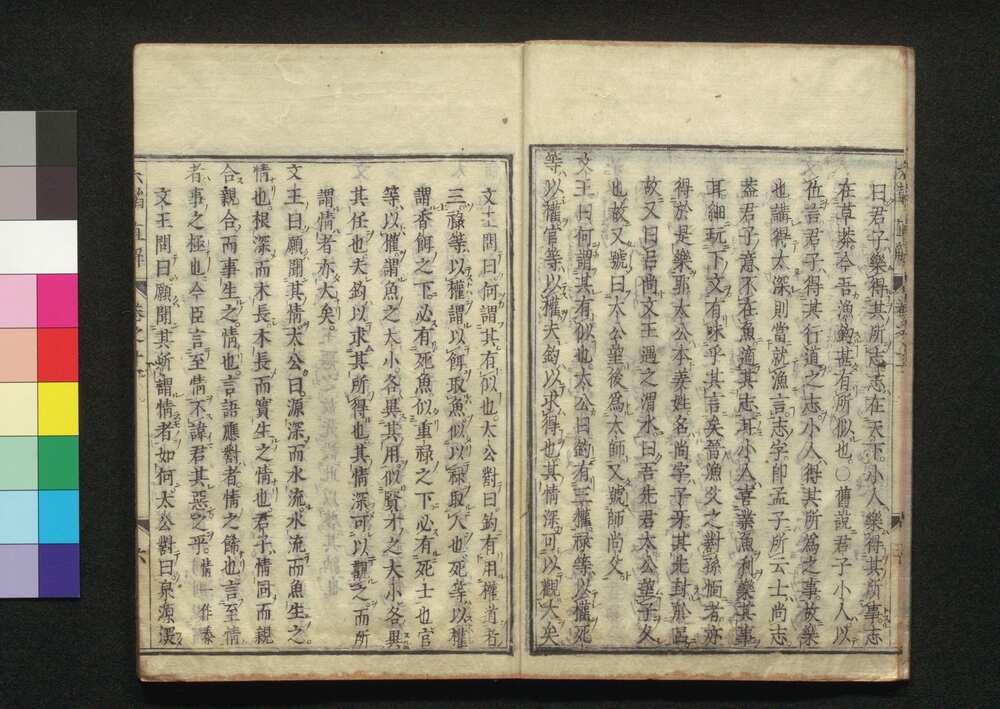 曰君子樂得其所志志在天下小人樂得其所事志
在草莽今吾漁釣甚有所似也○舊說君子小人以
位言君子得其行道之志小人得其所為之事故樂
也講得太深則當就漁言志字即孟子所云士尚志
蓋君子意不在魚適其志耳小人喜業漁利樂其事
耳細玩下文有味乎其言矣晉漁父之對孫愐者亦
得於是樂耶太公本姜姓名尚字子牙其先封於呂
故又曰呂尚文王遇之渭水曰吾先君太公望子久
也故又號曰太公望後為太師又號師尚父
文王曰何謂其有似也太公曰釣有三權祿等以權死
等以權官等以權夫釣以求得也其情深可以觀大矣
文王問曰何謂其有似也太公對曰釣有用權道者
三祿等以權謂以餌取魚似以祿取人也死等以權
謂香餌之下必有死魚似重祿之下必有死士也官
等以權謂魚之大小各異其用似賢才之大小各異
其任也夫釣以求其所得也其情深可以觀之而所
謂情者亦大矣
文王曰願聞其情太公曰源深而水流水流而魚生之
情也根深而木長木長而實生之情也君子情同而親
合親合而事生之情也言語應對者情之飾也言至情
者事之極也今臣言至情不諱君其惡之乎
文王問曰願聞其所謂情者如何太公對曰泉源深